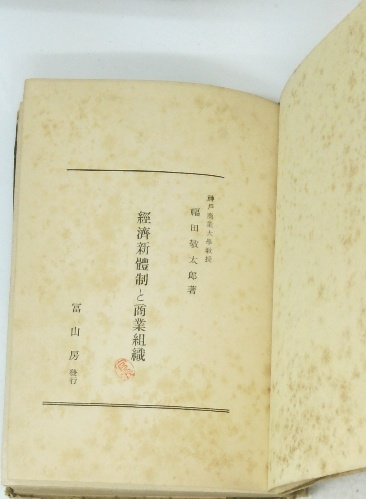 神戸商業大學教授
福田敬太郎著
經濟新體制と商業組織
冨山房發行